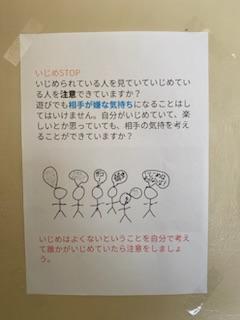 いじめSTOP
いじめられている人を見ていていじめてい
る人を注意できていますか？
遊びでも相手が嫌な気持ちになることはし
てはいけません。自分がいじめていて、楽
しいとか思っていても、相手の気持を考え
ることができていますか？
いじめはよくないということを自分で考え
て誰かがいじめていたら注意をしましょ
う。